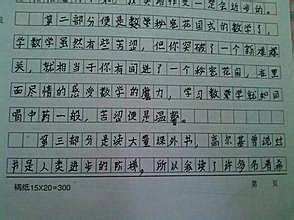 第二部分便是数学秘密花园式的数学了,
学数学虽然有些苦涩,但你突破了一个防难难
关,就相当于你有间进了一个秘密花园,在里
面尽情的感受数学的魔力,学习数要学就如目
蜀中药一般,苦涩便是温馨。
第三部分是读大量课外书,高尔基曾说过
书是人类进步的阶梯,所以我读了许多书看
稿纸15X20=300
第 页